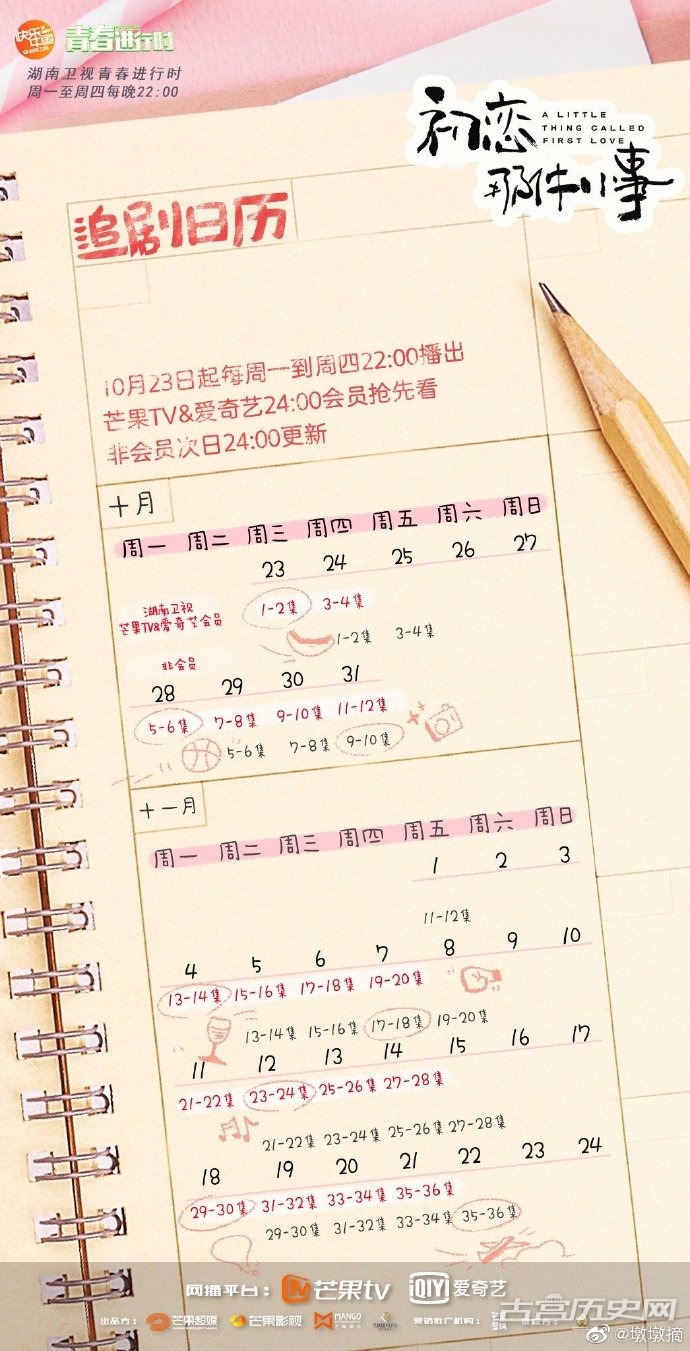 快乐中国
青春进行时
湖南卫视青春进行时
周一至周四每晚22:00
初恋那件小事
A LITTLE
THING CALLED
FIRST LOVE
追剧日历
10月23日起每周一到周四22:00播出
芒果TV&爱奇艺24:00会员抢先看
非会员次日24:00更新
十月
周一 周二 周三 周四 周五 周六 周日
23 24 25 26 27
湖南卫视
芒果TV&爱奇艺会员
1-2集 3-4集
非会员
1-2集 3-4集
28 29 30 31
5-6集 7-8集 9-10集 11-12集
5-6集 7-8集 9-10集
十一月
周一 周二 周三 周四 周五 周六 周日
1 2 3
11-12集
4 5 6 7 8 9 10
13-14集 15-16集 17-18集 19-20集
13-14集 15-16集 17-18集 19-20集
11 12 13 14 15 16 17
21-22集 23-24集 25-26集 27-28集
21-22集 23-24集 25-26集 27-28集
18 19 20 21 22 23 24
29-30集 31-32集 33-34集 35-36集
29-30集 31-32集 33-34集 35-36集
网播平台: 芒果tv QIY 爱奇艺
古宫历史网
出品方: 芒果超媒 芒果影视 MANGO 营销推广机构:
@墩墩摘